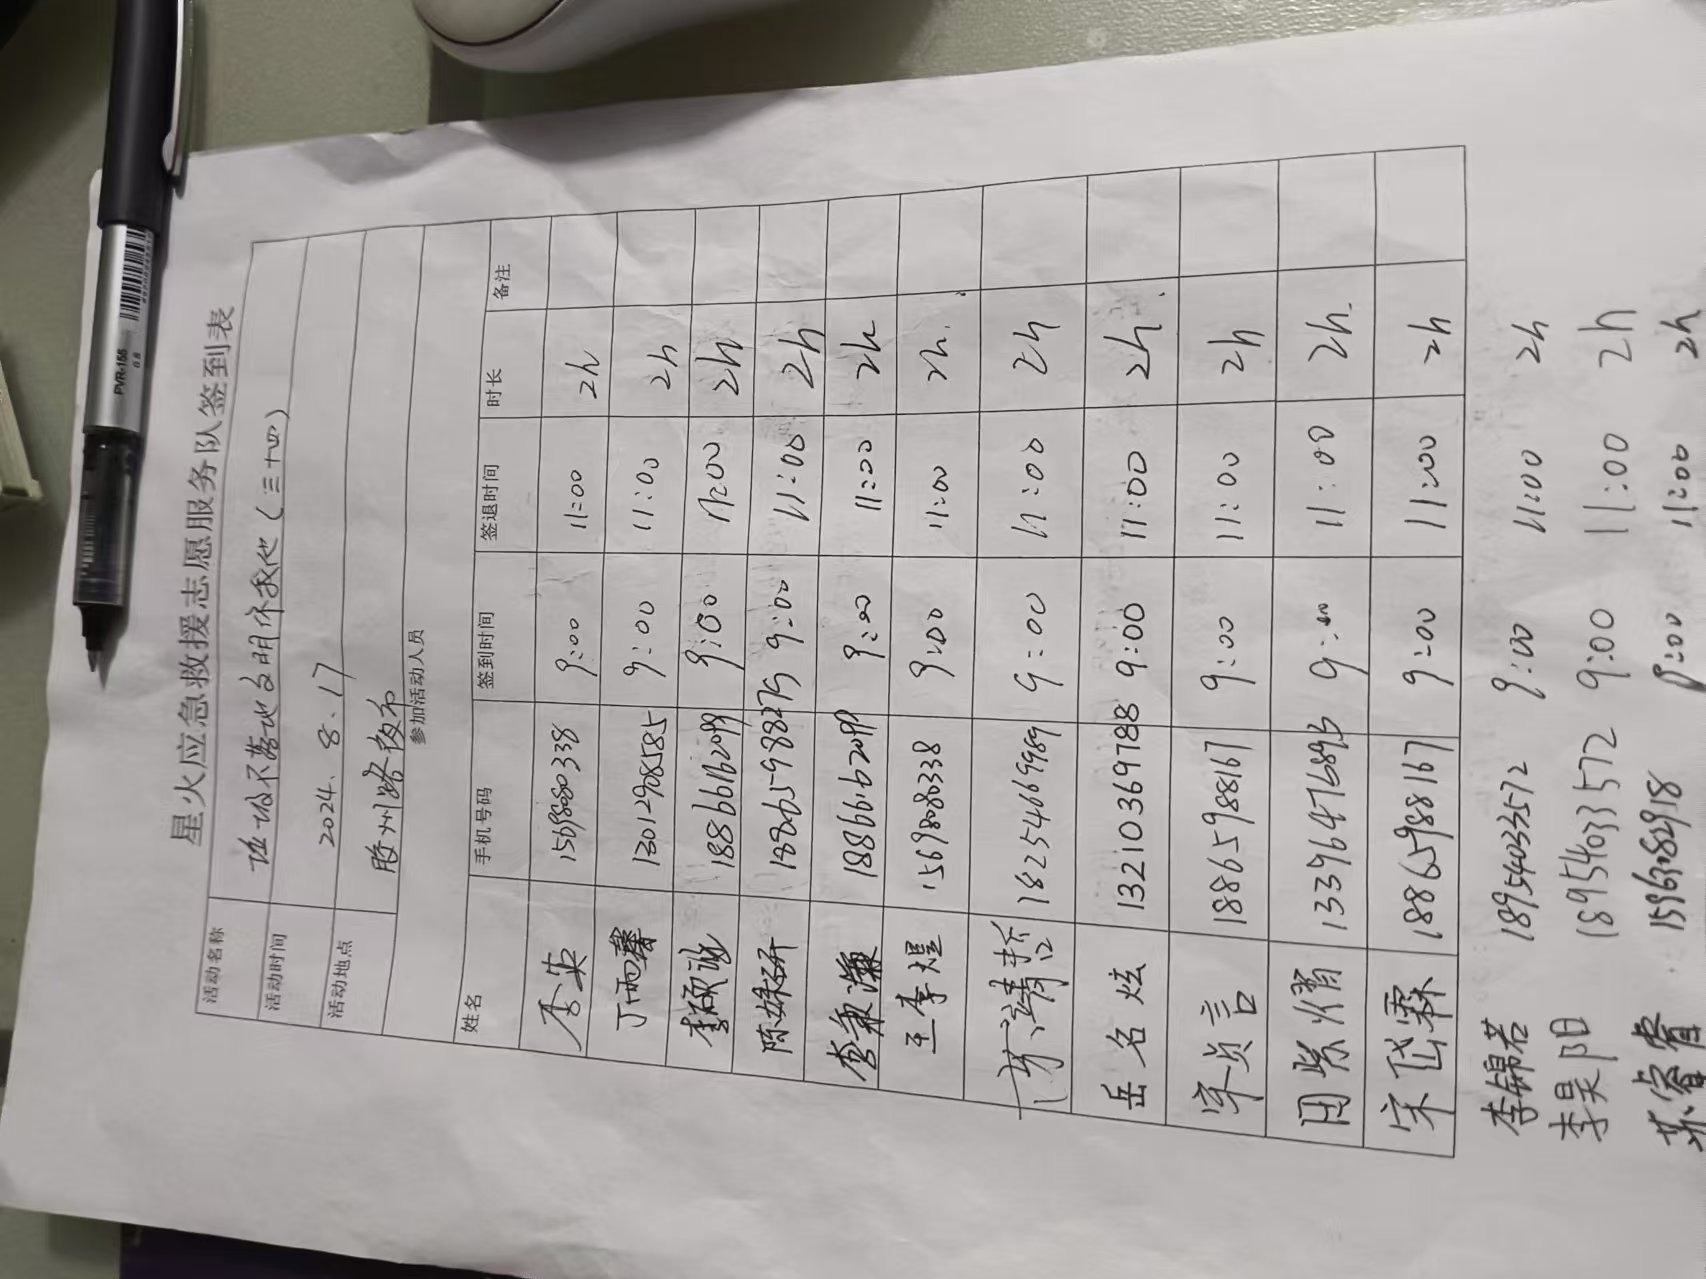 星火应急救援志愿服务队签到表
活动名称 垃圾不落地文明伴我行(三十四)
活动时间 2024.8.17
活动地点 胶州路夜市
参加活动人员
姓名 手机号码 签到时间 签退时间 时长 备注
李英 15698080338 9:00 11:00 2h
丁雨馨 13012908585 9:00 11:00 2h
李硕 18866162099 9:00 11:00 2h
陈妍 9:00 11:00 2h
李秉谦 18866162099 9:00 11:00 2h
王李煜 15698080338 9:00 11:00 2h
清哲 18254669989 9:00 11:00 2h
岳名炫 13210369788 9:00 11:00 2h
宋贞言 18865988167 9:00 11:00 2h
田紫熠 13396476893 9:00 11:00 2h.
宋岱霖 18865988167 9:00 11:00 2h
李锦若 18954033572 9:00 11:00 2h
李昊阳 18954033572 9:00 11:00 2h
苏睿睿 11:00 2h
PVR-155
0.5